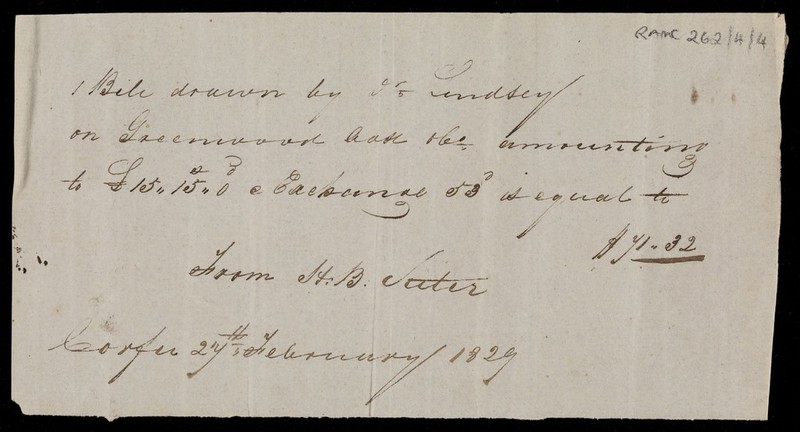 RAMC 262/4/4
1 Bill drawn by Dr Lindsey
on Greenwood Cox &Co amounting
to £15,, 15s,, 0d @ Exchange 53d is equal to
$71,, 32
From H. B. Suter
Corfu 27th February 1829